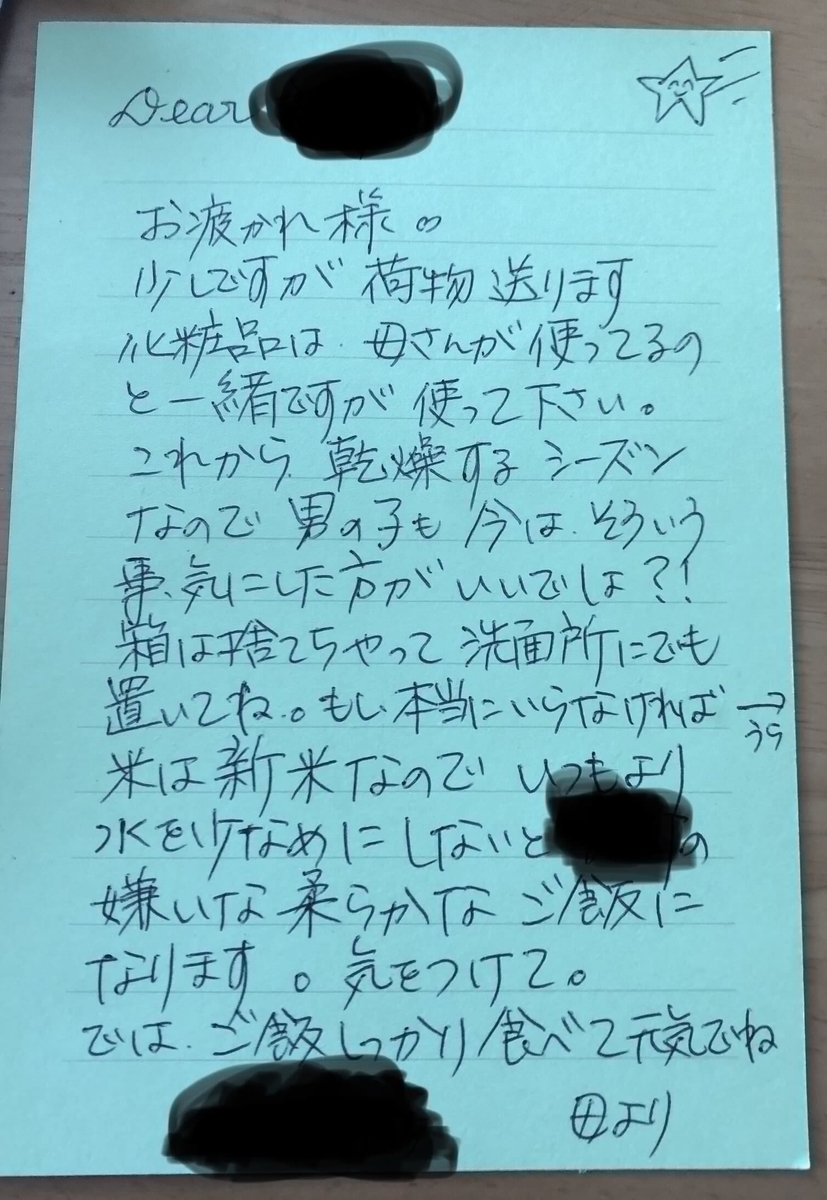 Dear
お疲かれ様。
少しですが 荷物 送ります
化粧品は、母さんが使ってるの
と一緒ですが 使って下さい。
これから、乾燥する シーズン
なので 男の子も 今は、そういう
事、気にした方がいいでしは?!
箱は捨てちゃって 洗面所にでも
置いてね。もし本当にいらなければ →
うら
米は新米なので いつもより
水を少なめに しないと の
嫌いな 柔らかな ご飯に
なります 。気をつけて。
では、ご飯しっかり食べて元気でね
母より